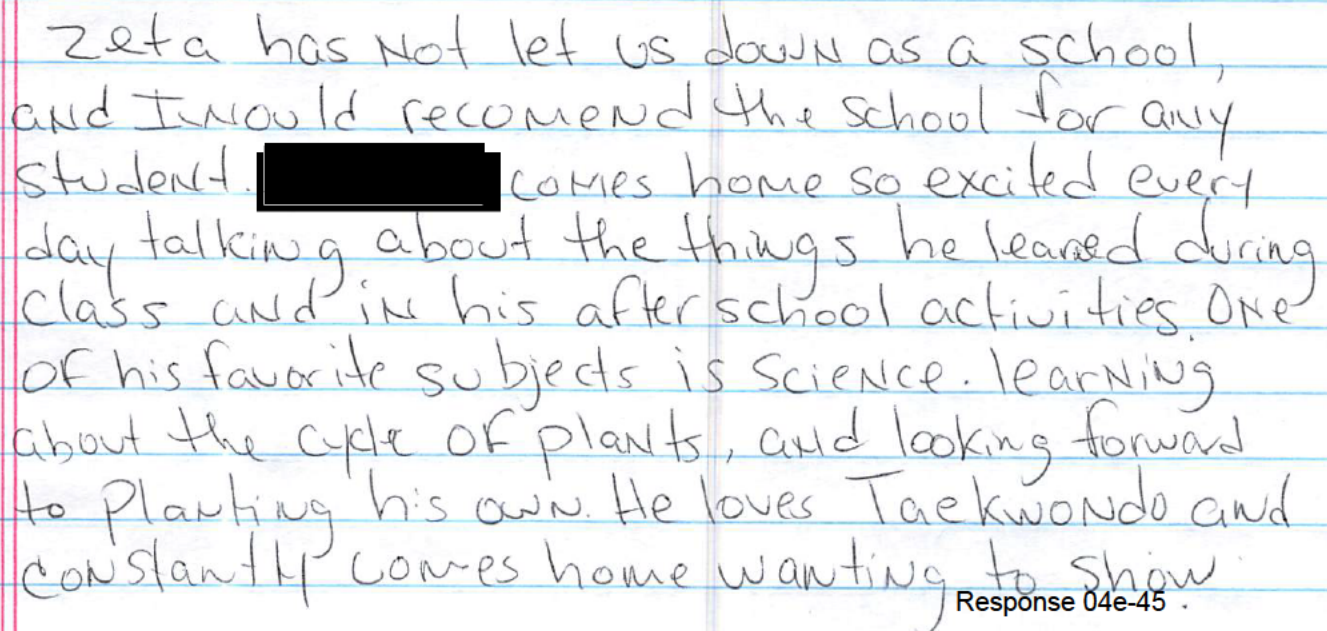 Zeta has not let us down as a school,
and I would recomend the school for any
student. comes home so excited every
day talking about the things he learned during
class and in his after school activities. One
of his favorite subjects is science. learning
about the cycle of plants, and looking forward
to planting his own. He loves Taekwondo and
constantly comes home wanting to show
Response 04e-45